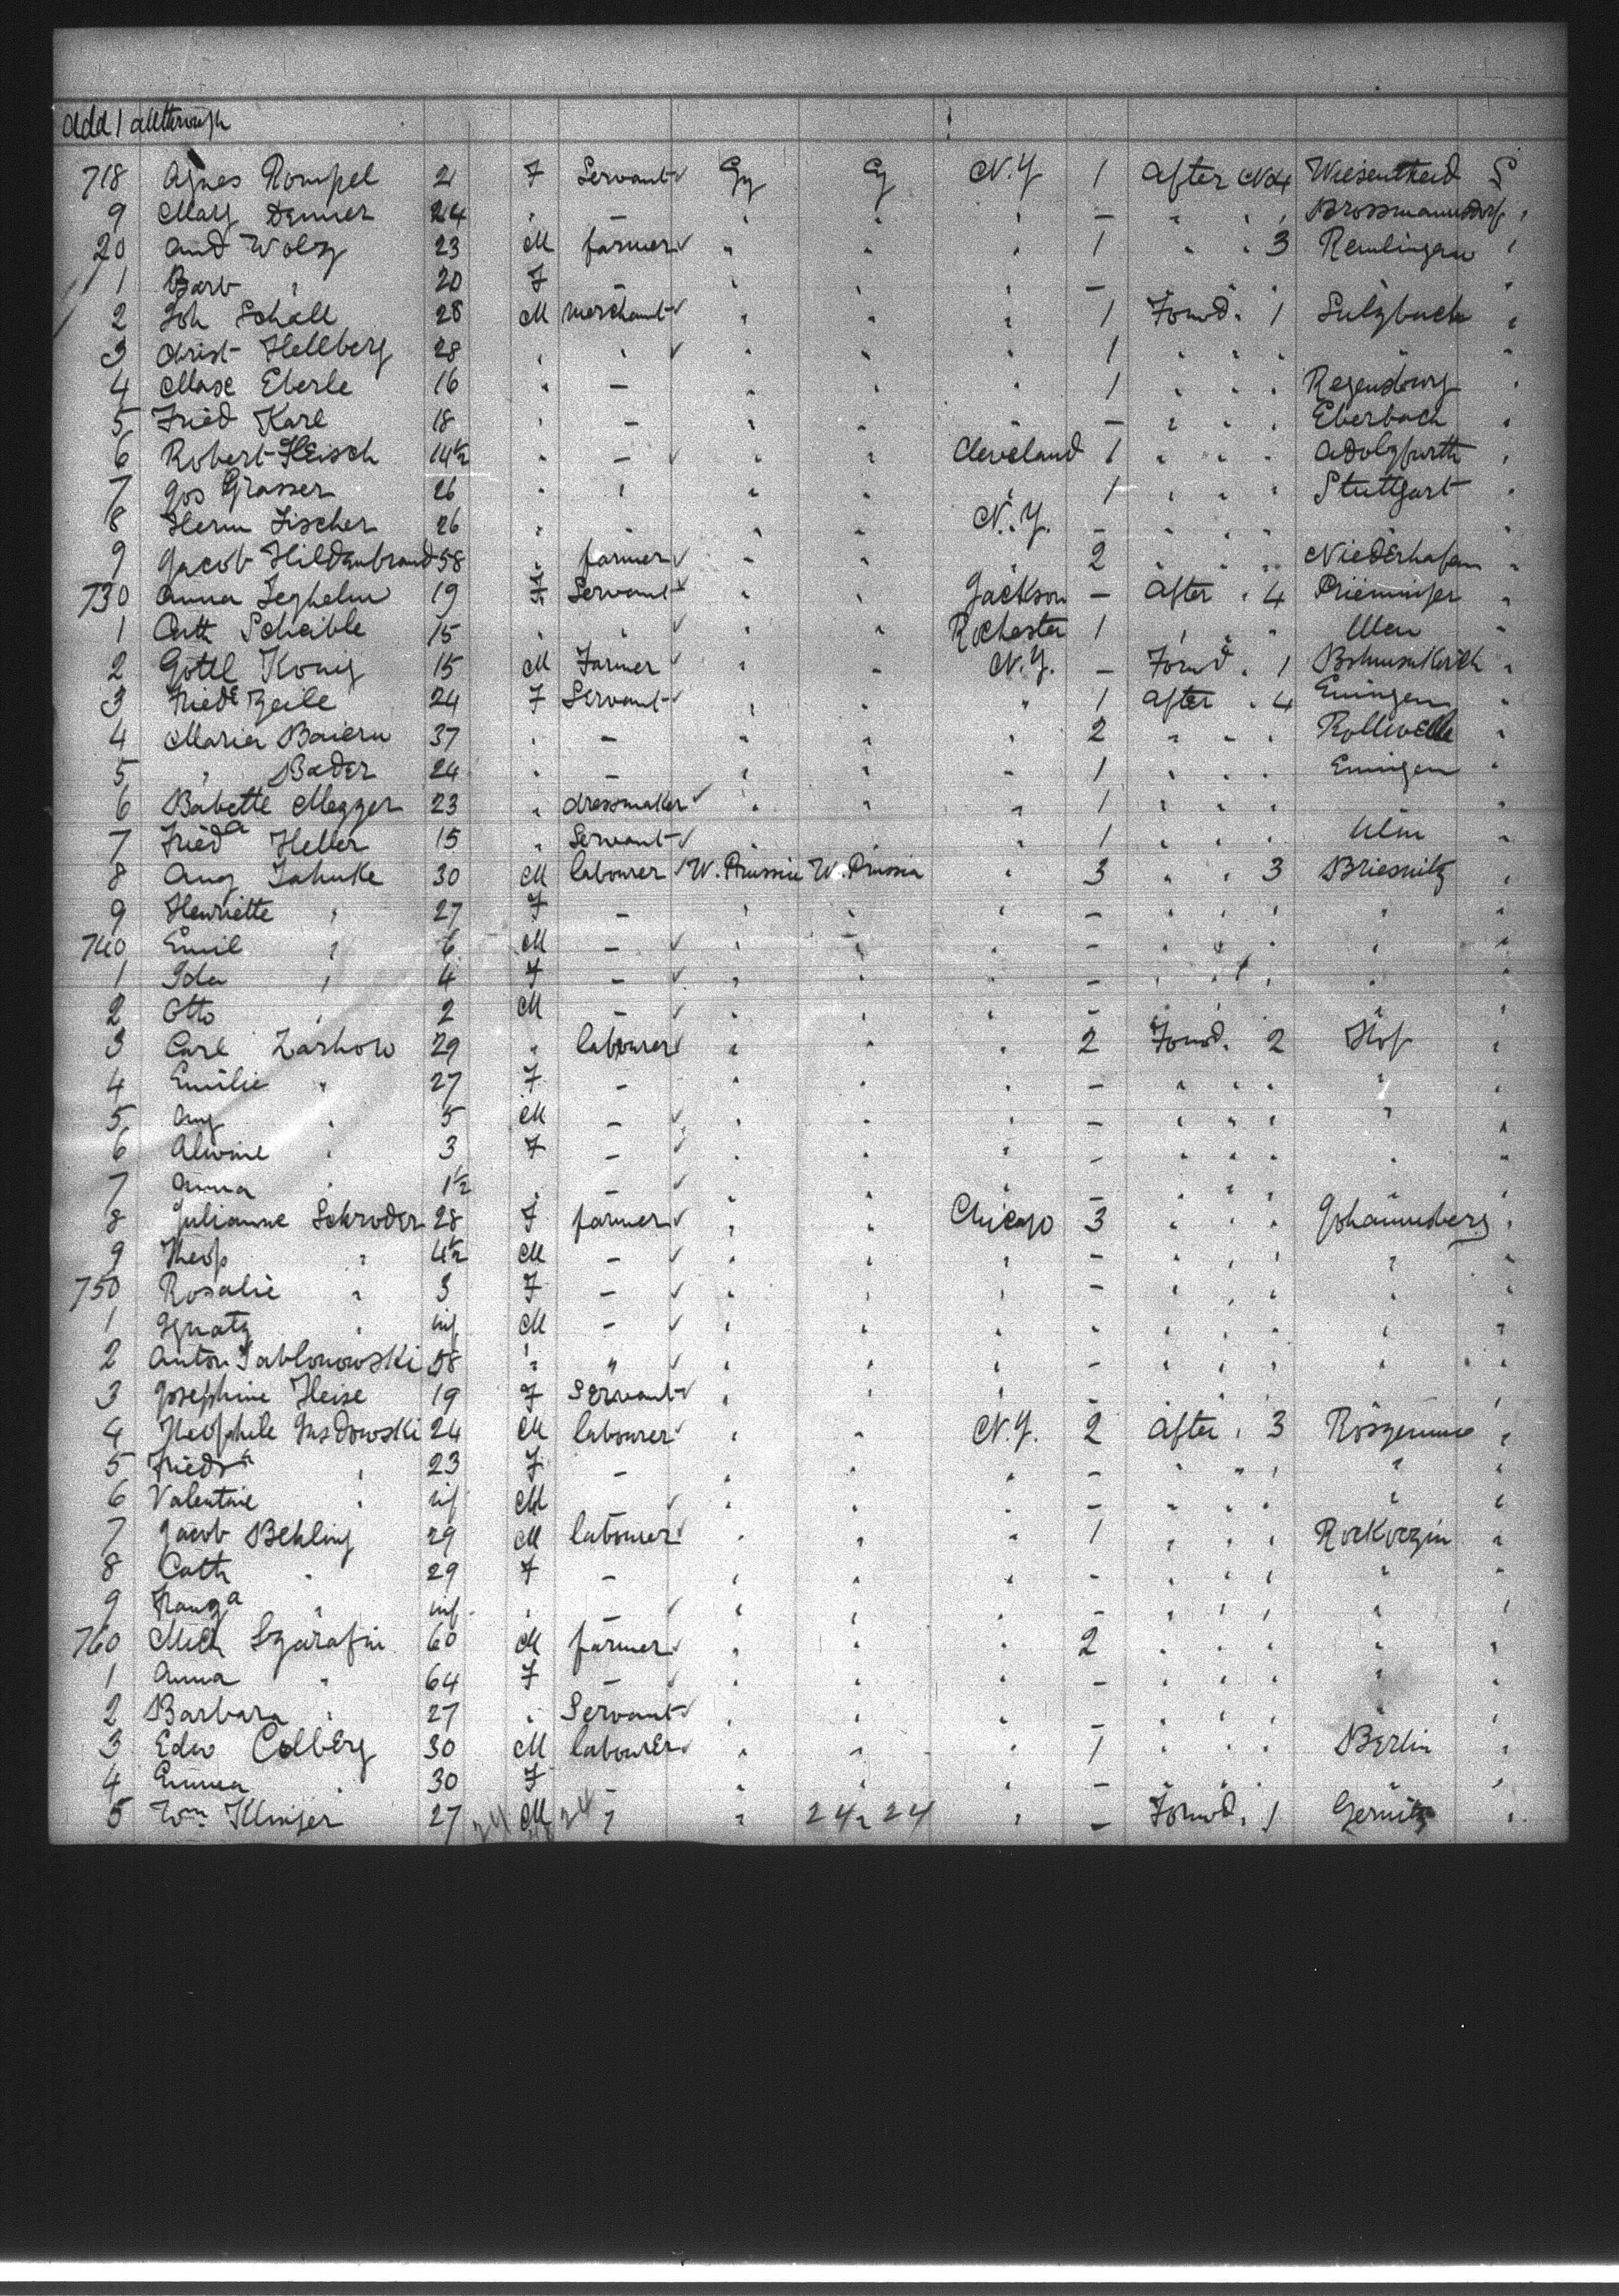 add 1 all through
718 Agnes Rompel 21 F Servant ✓ Gy Gy N.Y 1 After No 4 Wiesentheid S
9 Mary Denner 24 " – " " " – " " " Brossmannsdorf "
20 And Wolz 23 M farmer ✓ " " " 1 " " 3 Remlingen "
1 Barb " 20 F – " " " – " " " "
2 Joh Schall 28 M merchant ✓ " " " 1 Forwd " 1 Sulzbach "
3 Christ Hellberg 28 " " ✓ " " " 1 " " " " "
4 Max Eberle 16 " – " " " 1 " " " Regensburg "
5 Fried Karl 18 " – " " " – " " " Eberbach "
6 Robert Fleisch 14½ " – ✓ " " Cleveland 1 " " " Adolzfurth "
7 Jos Grasser 26 " " " " " 1 " " " Stuttgart "
8 Herm Fischer 26 " " " " N.Y. – " " " " "
9 Jacob Hildenbrand 58 " farmer ✓ " " " 2 " " " Niederhofen "
730 Anna Seghelm 19 F Servant ✓ " " Jackson – After " 4 "
1 Cath Scheible 15 " " ✓ " " Rochester 1 " " " Ulm "
2 Gottl Konig 15 M Farmer ✓ " " N.Y. – Forwd " 1 "
3 Friede Zeile 24 F Servant ✓ " " " 1 After " 4 Eningen "
4 Maria Baiern 37 " – " " " 2 " " " "
5 " Bader 24 " – " " " 1 " " " Eningen "
6 Babette Megger 23 " dressmaker ✓ " " " 1 " " " " "
7 Frieda Heller 15 " Servant ✓ " " " 1 " " " Ulm "
8 Aug Jahnke 30 M labourer ✓ W. Prussia W. Prussia " 3 " " 3 Briesnitz "
9 Henriette " 27 F – " " " – " " " " "
740 Emil " 6 M – ✓ " " " – " " " " "
1 Ida " 4 F – ✓ " " " – " " " " "
2 Otto " 2 M – ✓ " " " – " " " " "
3 Carl Zarhow 29 " labourer ✓ " " " 2 Forwd. 2 Hof "
4 Emilie " 27 F – " " " – " " " " "
5 Aug " 5 M – ✓ " " " – " " " " "
6 Alwine " 3 F – ✓ " " " – " " " " "
7 Anna " 1½ " – ✓ " " " – " " " " "
8 Julianne Schroder 28 F farmer ✓ " " Chicago 3 " " " Johannesberg "
9 Theop " 4½ M – ✓ " " " – " " " " "
750 Rosalie " 3 F – ✓ " " " – " " " " "
1 Ignatz " inf M – ✓ " " " – " " " " "
2 Anton Jablonowski 58 " " ✓ " " " – " " " " "
3 Josephine Heise 19 F Servant ✓ " " " – " " " " "
4 Theophile Gusdowski 24 M labourer ✓ " " N.Y. 2 After " 3 "
5 " 23 F – " " " – " " " " "
6 Valentine " inf M – ✓ " " " – " " " " "
7 Jacob Behling 29 M labourer ✓ " " " 1 " " " Rokoczin "
8 Cath " 29 F – " " " – " " " " "
9 " inf " – ✓ " " " – " " " " "
760 Mich Szarafin 60 M farmer ✓ " " " 2 " " " " "
1 Anna " 64 F – ✓ " " " – " " " " "
2 Barbara " 27 " Servant ✓ " " " – " " " " "
3 Edw Colberg 30 M labourer ✓ " " " 1 " " " Berlin "
4 Emma " 30 F – " " " – " " " " "
5 Wm. Klinger 27 24 M 24 " " 24 " 24 " – Forwd. 1 "